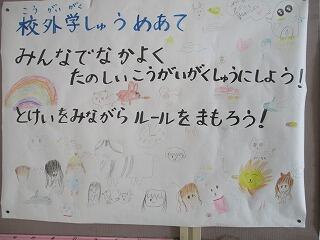 こうがいがく
校外学しゅうめあて
みんなでなかよく
たのしいこうがいがくしゅうにしよう！
とけいをみながらルールをまもろう！